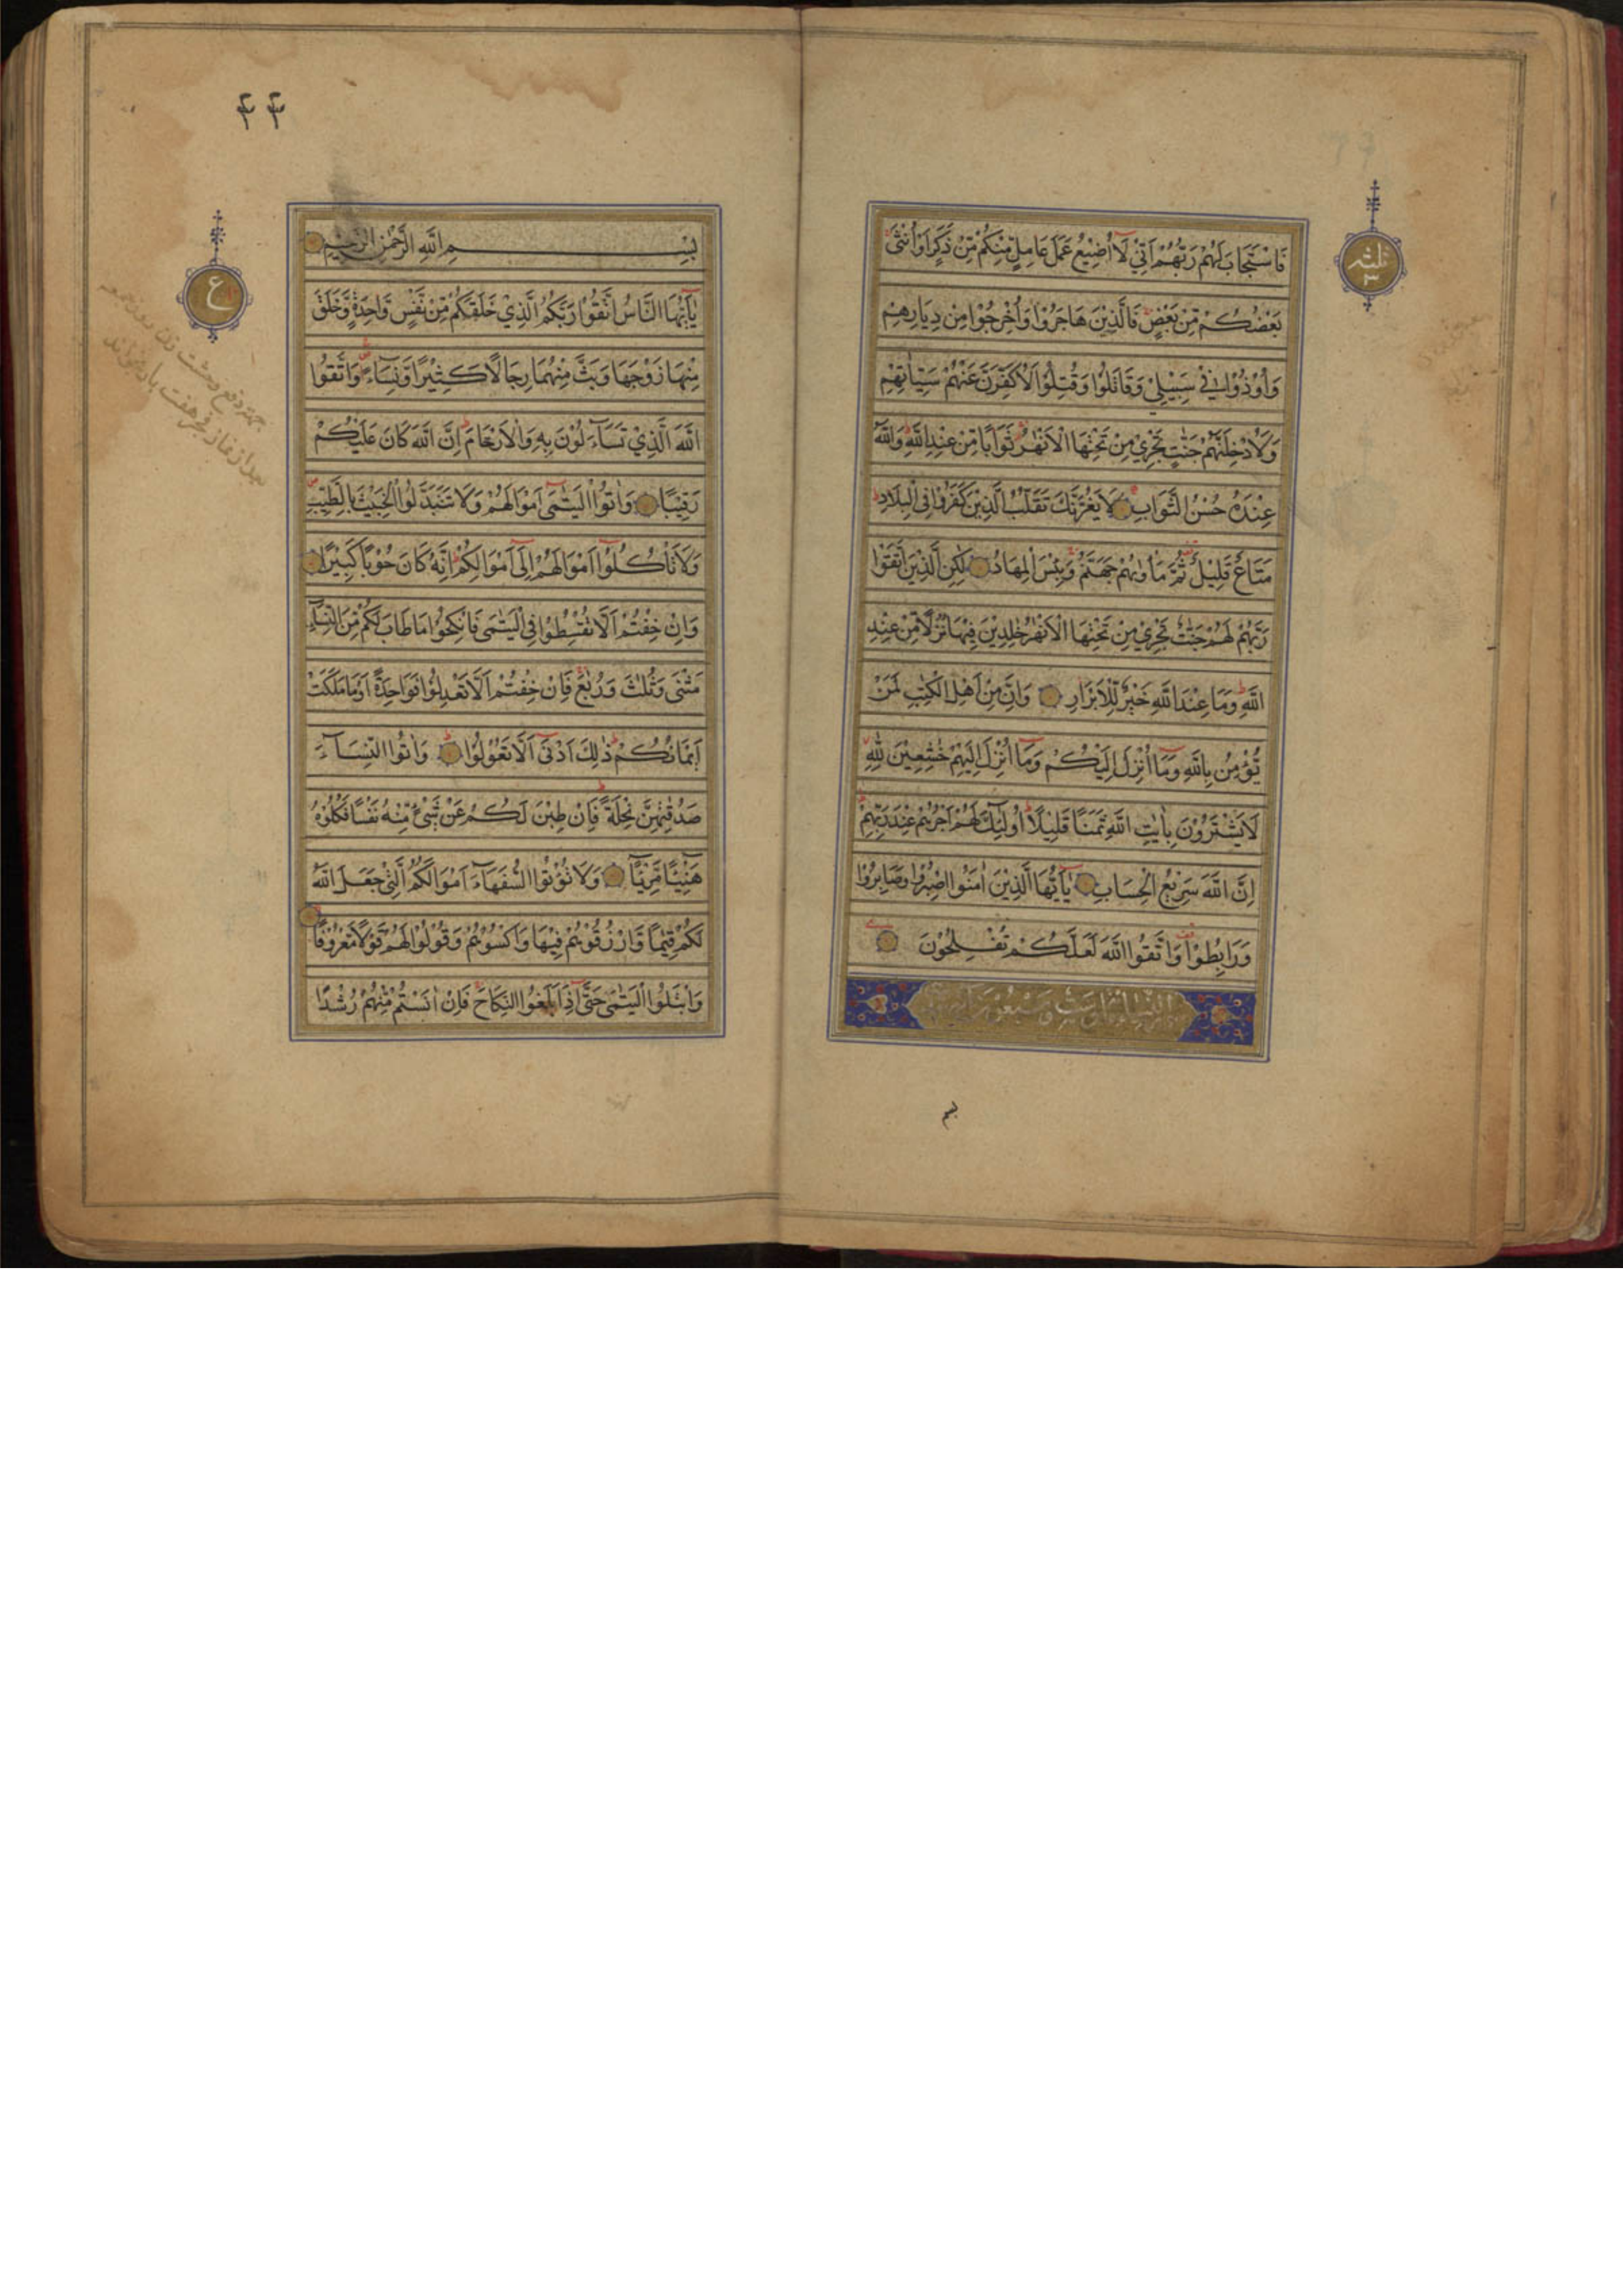 ثلثه
٣
فَاسْتَجَابَ لَهُمْ رَبُّهُمْ اَنِّيْ لَآ اُضِيْعُ عَمَلَ عَامِلٍ مِّنْكُمْ مِّنْ ذَكَرٍ اَوْ اُنْثٰى
بَعْضُكُمْ مِّنْ بَعْضٍ فَالَّذِيْنَ هَاجَرُوْا وَاُخْرِجُوْا مِنْ دِيَارِهِمْ
وَاُوْذُوْا فِيْ سَبِيْلِيْ وَقَاتَلُوْا وَقُتِلُوْا لَاُكَفِّرَنَّ عَنْهُمْ سَيِّاٰتِهِمْ
وَلَاُدْخِلَنَّهُمْ جَنّٰتٍ تَجْرِيْ مِنْ تَحْتِهَا الْاَنْهٰرُ ثَوَابًا مِّنْ عِنْدِ اللّٰهِ وَاللّٰهُ
عِنْدَهٗ حُسْنُ الثَّوَابِ لَا يَغُرَّنَّكَ تَقَلُّبُ الَّذِيْنَ كَفَرُوْا فِى الْبِلَادِ
مَتَاعٌ قَلِيْلٌ ثُمَّ مَاْوٰىهُمْ جَهَنَّمُ وَبِئْسَ الْمِهَادُ لٰكِنِ الَّذِيْنَ اتَّقَوْا
رَبَّهُمْ لَهُمْ جَنّٰتٌ تَجْرِيْ مِنْ تَحْتِهَا الْاَنْهٰرُ خٰلِدِيْنَ فِيْهَا نُزُلًا مِّنْ عِنْدِ
اللّٰهِ وَمَا عِنْدَ اللّٰهِ خَيْرٌ لِّلْاَبْرَارِ وَاِنَّ مِنْ اَهْلِ الْكِتٰبِ لَمَنْ
يُّؤْمِنُ بِاللّٰهِ وَمَآ اُنْزِلَ اِلَيْكُمْ وَمَآ اُنْزِلَ اِلَيْهِمْ خٰشِعِيْنَ لِلّٰهِ
لَا يَشْتَرُوْنَ بِاٰيٰتِ اللّٰهِ ثَمَنًا قَلِيْلًا اُولٰٓئِكَ لَهُمْ اَجْرُهُمْ عِنْدَ رَبِّهِمْ
اِنَّ اللّٰهَ سَرِيْعُ الْحِسَابِ يٰٓاَيُّهَا الَّذِيْنَ اٰمَنُوا اصْبِرُوْا وَصَابِرُوْا
وَرَابِطُوْا وَاتَّقُوا اللّٰهَ لَعَلَّكُمْ تُفْلِحُوْنَ
بسم
٤٤
ع
بِسْمِ اللّٰهِ الرَّحْمٰنِ الرَّحِيْمِ
يٰٓاَيُّهَا النَّاسُ اتَّقُوْا رَبَّكُمُ الَّذِيْ خَلَقَكُمْ مِّنْ نَّفْسٍ وَّاحِدَةٍ وَّخَلَقَ
مِنْهَا زَوْجَهَا وَبَثَّ مِنْهُمَا رِجَالًا كَثِيْرًا وَّنِسَآءً وَاتَّقُوا
اللّٰهَ الَّذِيْ تَسَآءَلُوْنَ بِهٖ وَالْاَرْحَامَ اِنَّ اللّٰهَ كَانَ عَلَيْكُمْ
رَقِيْبًا وَاٰتُوا الْيَتٰمٰٓى اَمْوَالَهُمْ وَلَا تَتَبَدَّلُوا الْخَبِيْثَ بِالطَّيِّبِ
وَلَا تَاْكُلُوْٓا اَمْوَالَهُمْ اِلٰٓى اَمْوَالِكُمْ اِنَّهٗ كَانَ حُوْبًا كَبِيْرًا
وَاِنْ خِفْتُمْ اَلَّا تُقْسِطُوْا فِى الْيَتٰمٰى فَانْكِحُوْا مَا طَابَ لَكُمْ مِّنَ النِّسَآءِ
مَثْنٰى وَثُلٰثَ وَرُبٰعَ فَاِنْ خِفْتُمْ اَلَّا تَعْدِلُوْا فَوَاحِدَةً اَوْ مَا مَلَكَتْ
اَيْمَانُكُمْ ذٰلِكَ اَدْنٰٓى اَلَّا تَعُوْلُوْا وَاٰتُوا النِّسَآءَ
صَدُقٰتِهِنَّ نِحْلَةً فَاِنْ طِبْنَ لَكُمْ عَنْ شَيْءٍ مِّنْهُ نَفْسًا فَكُلُوْهُ
هَنِيْٓئًا مَّرِيْٓئًا وَلَا تُؤْتُوا السُّفَهَآءَ اَمْوَالَكُمُ الَّتِيْ جَعَلَ اللّٰهُ
لَكُمْ قِيٰمًا وَّارْزُقُوْهُمْ فِيْهَا وَاكْسُوْهُمْ وَقُوْلُوْا لَهُمْ قَوْلًا مَّعْرُوْفًا
وَابْتَلُوا الْيَتٰمٰى حَتّٰٓى اِذَا بَلَغُوا النِّكَاحَ فَاِنْ اٰنَسْتُمْ مِّنْهُمْ رُشْدًا